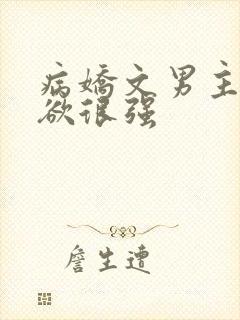 病嬌文男主
欲很强
詹生遭